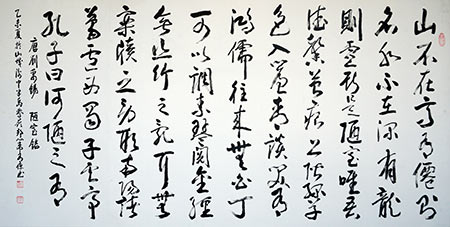 山不在高有僊則
名水不在深有龍
則靈斯是陋室唯吾
德馨苔痕上階綠草
色入簾青談笑有
鴻儒往來無白丁
可以調素琴閱金經
無絲竹之亂耳無
案牘之勞形南陽諸
葛廬西蜀子雲亭
孔子曰何陋之有
唐劉禹錫 陋室銘
乙未夏於山城